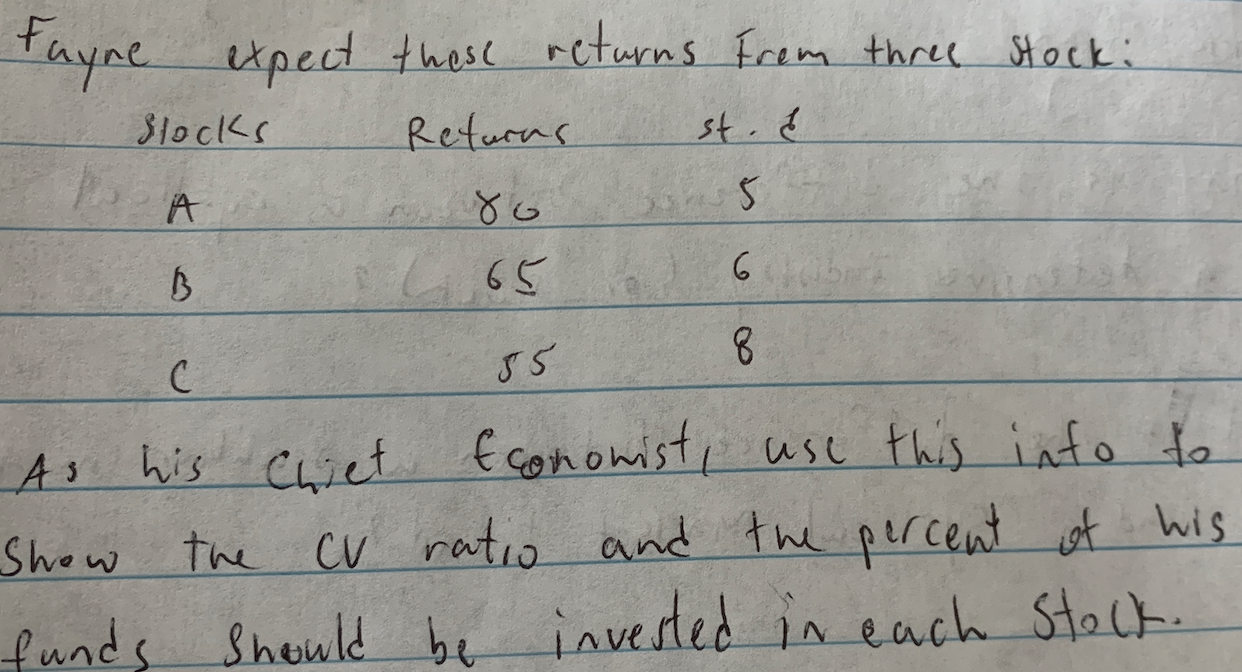 Fayne expect these returns from three stock:
Stocks Returns st. d
A 80 5
B 65 6
C 55 8
As his Chief Economist, use this info to
show the CV ratio and the percent of his
funds should be invested in each stock.